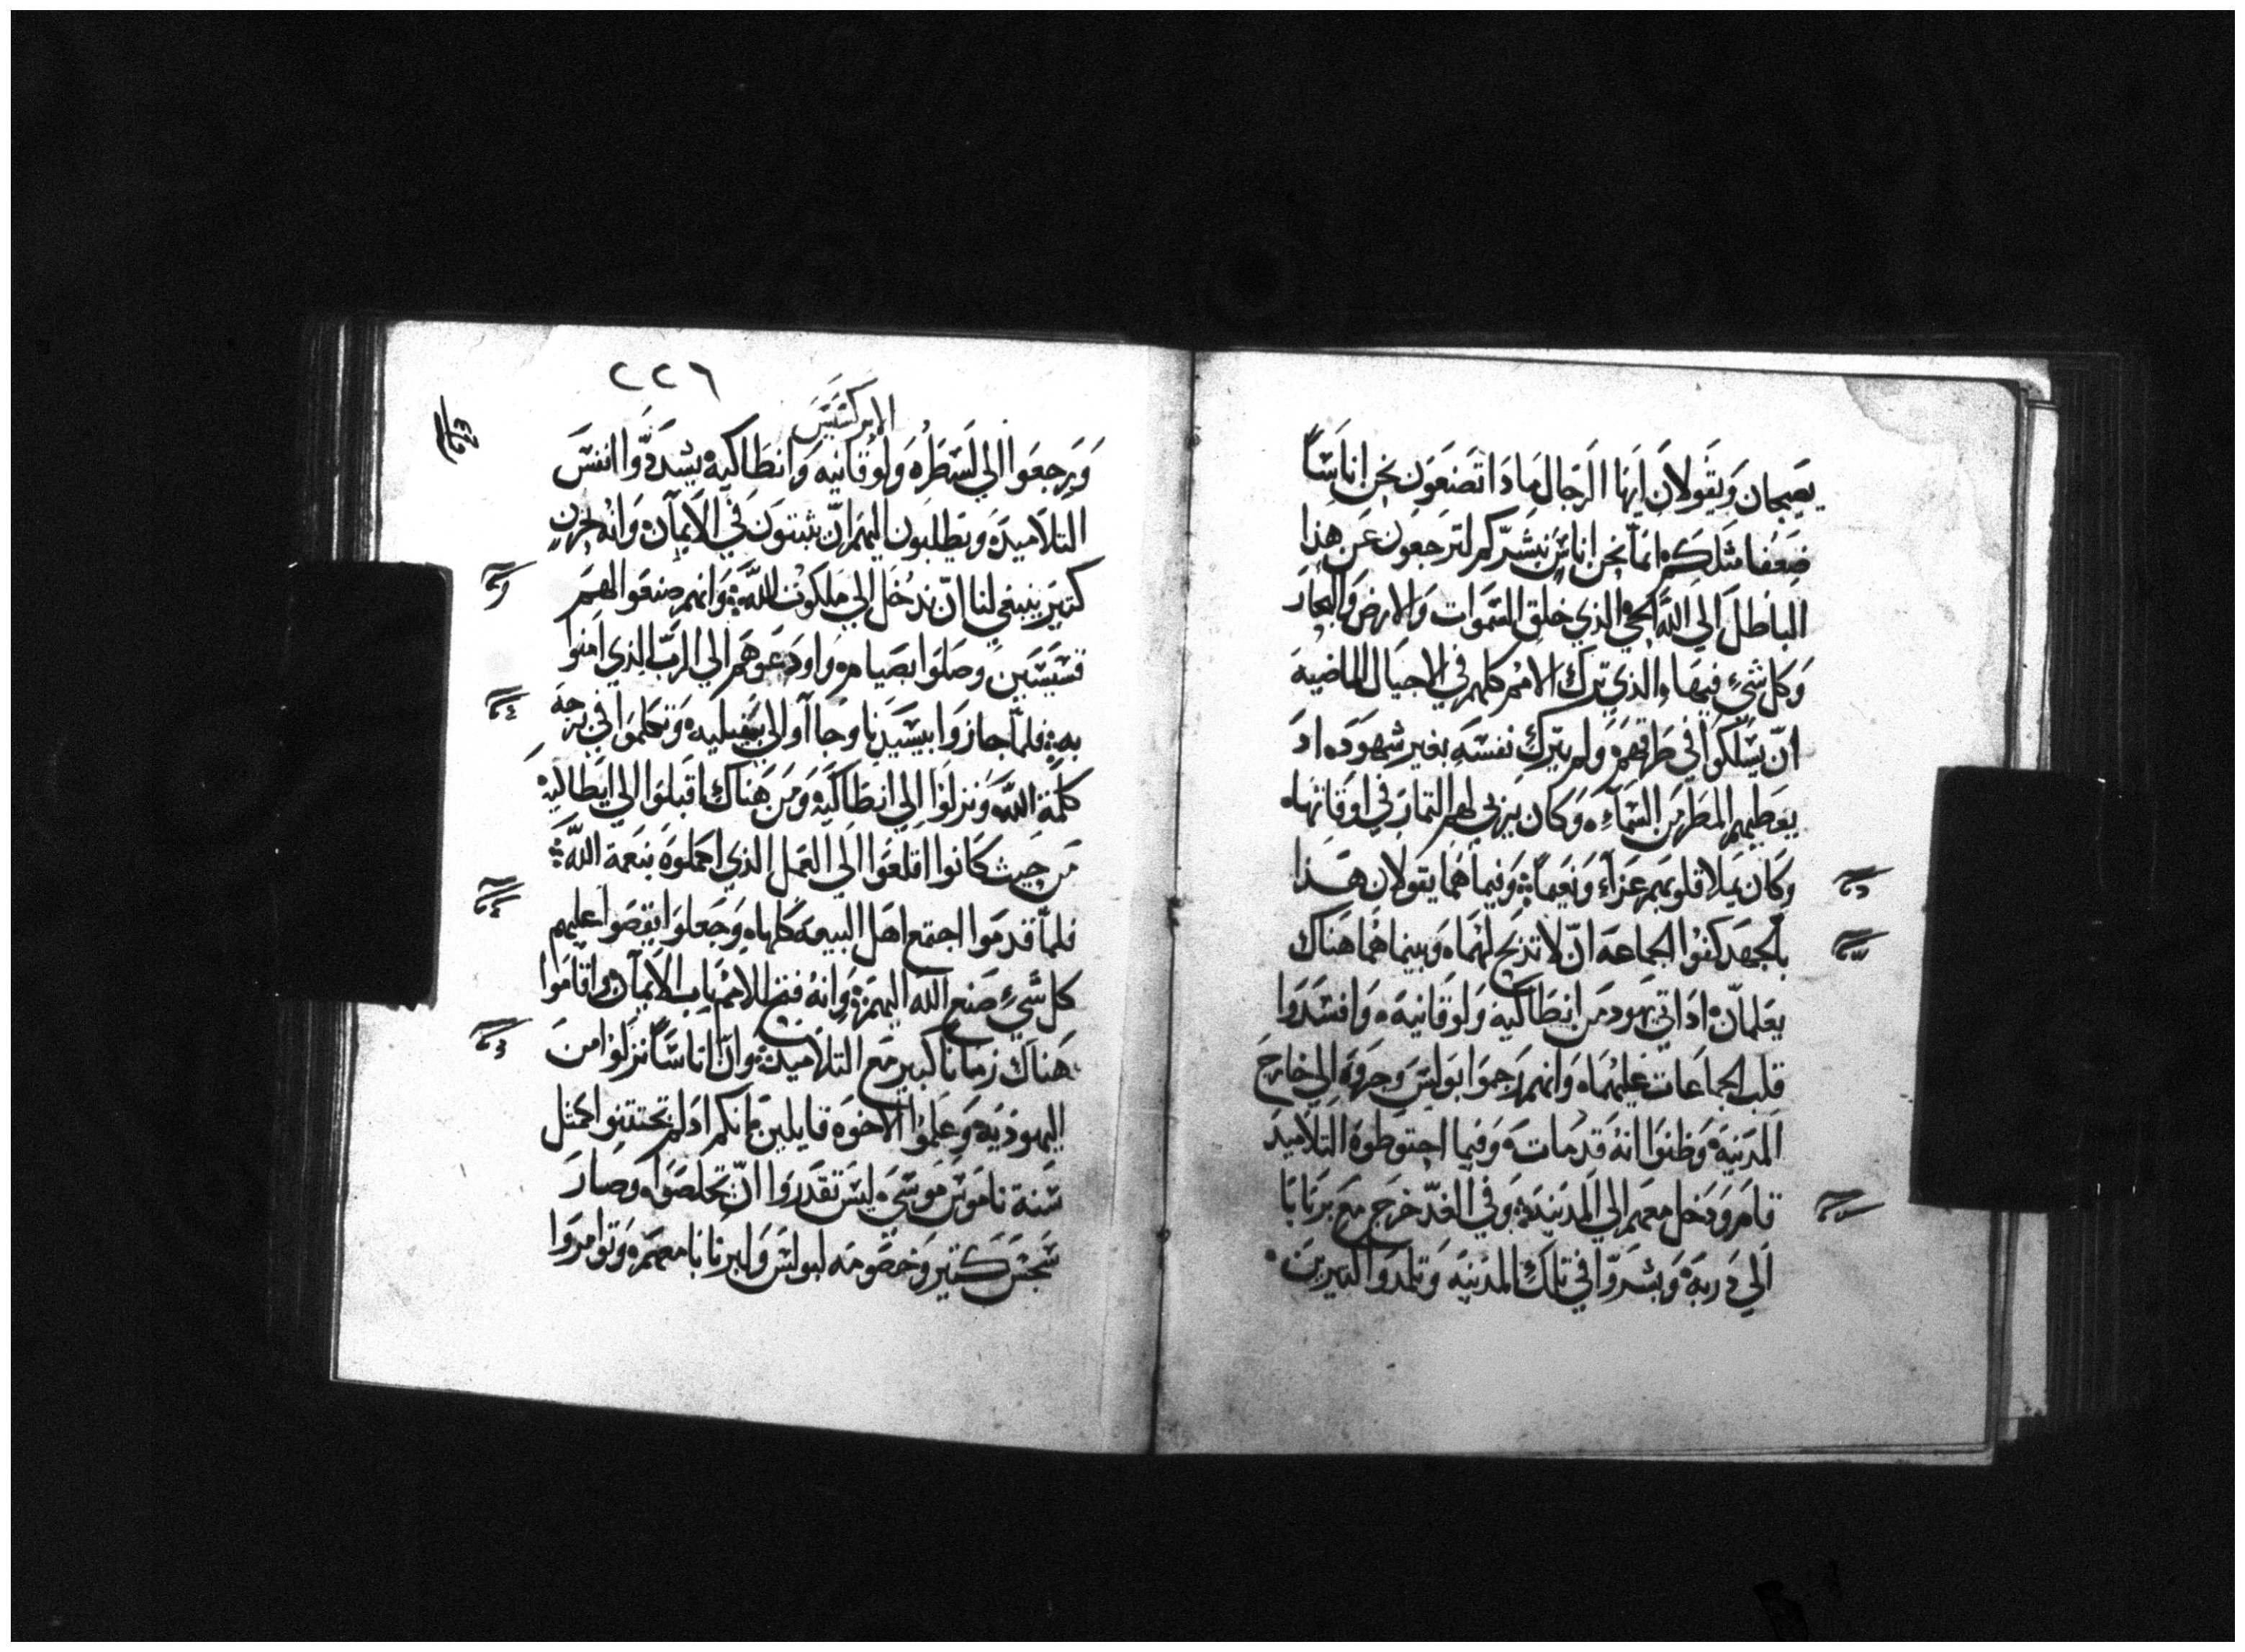 يصيحان ويقولان ايها الرجال مادا تصنعون نحن اناسًا
ضعفا مثلكم انما نحن اناس نبشركم لترجعون عن هذا
الباطل الي الله الحي الذي خلق السموات والارض والبحار
وكل شيء فيها والذي ترك الامم كلهم في الاجيال الماضية
ان يسلكوا في طرقهم ولم يترك نفسه بغير شهوده اد
يعطيهم المطر من السماء وكان يربي لهم التمار في اوقاتها
وكان يملا قلوبهم عزاء ونعيما وفيما هما يقولان هذا
بالجهد كفوا الجماعه ان لا تذبح لهما وبينما هما هناك
يعلمان اد اتي يهود من انطاكيه ولوقانيه وافسدوا
قلب الجماعات عليهما وانهم رجموا بولس وجروه الي خارج
المدينه وظنوا انه قد مات وفيما احتوطوه التلاميد
قام ودخل معهم الي المدينه وفي الغد خرج مع برنابا
الي دربه وبشروا في تلك المدينه وتلمدوا كتيرين
٢٢٦
الابركسيس
ورجعوا الي لسطره ولوقانيه وانطاكيه يشددوا انفس
التلاميد ويطلبون اليهم ان يثبتون في الايمان وانه بحزن
كتير ينبغي لنا ان ندخل الي ملكوت الله وانهم صنعوا لهم
قسيسين وصلوا بصيام واودعوهم الي الرب الذي امنوا
به فلما جازوا بيسيديا وجاآوا الي بمفيليه وتكلموا في برجه
كلمة الله ونزلوا الي انطاكيه ومن هناك اقبلوا الي ايطاليه
من حيث كانوا اقلعوا الي العمل الذي اكملوه بنعمة الله
فلما قدموا اجتمع اهل البيعه كلها وجعلوا يقصوا عليهم
كل شيء صنع الله اليهم وانه فتح للامم باب الايمان واقاموا
هناك زمانا كبير مع التلاميد وان اناسًا نزلوا من
اليهوديه وعلموا الاخوه قايلين انكم اد لم تختتنوا كمثل
سنة ناموس موسي ليس تقدروا ان تخلصوا وصار
سجس كتير وخصومه لبولس ولبرنابا معهم وتوامروا